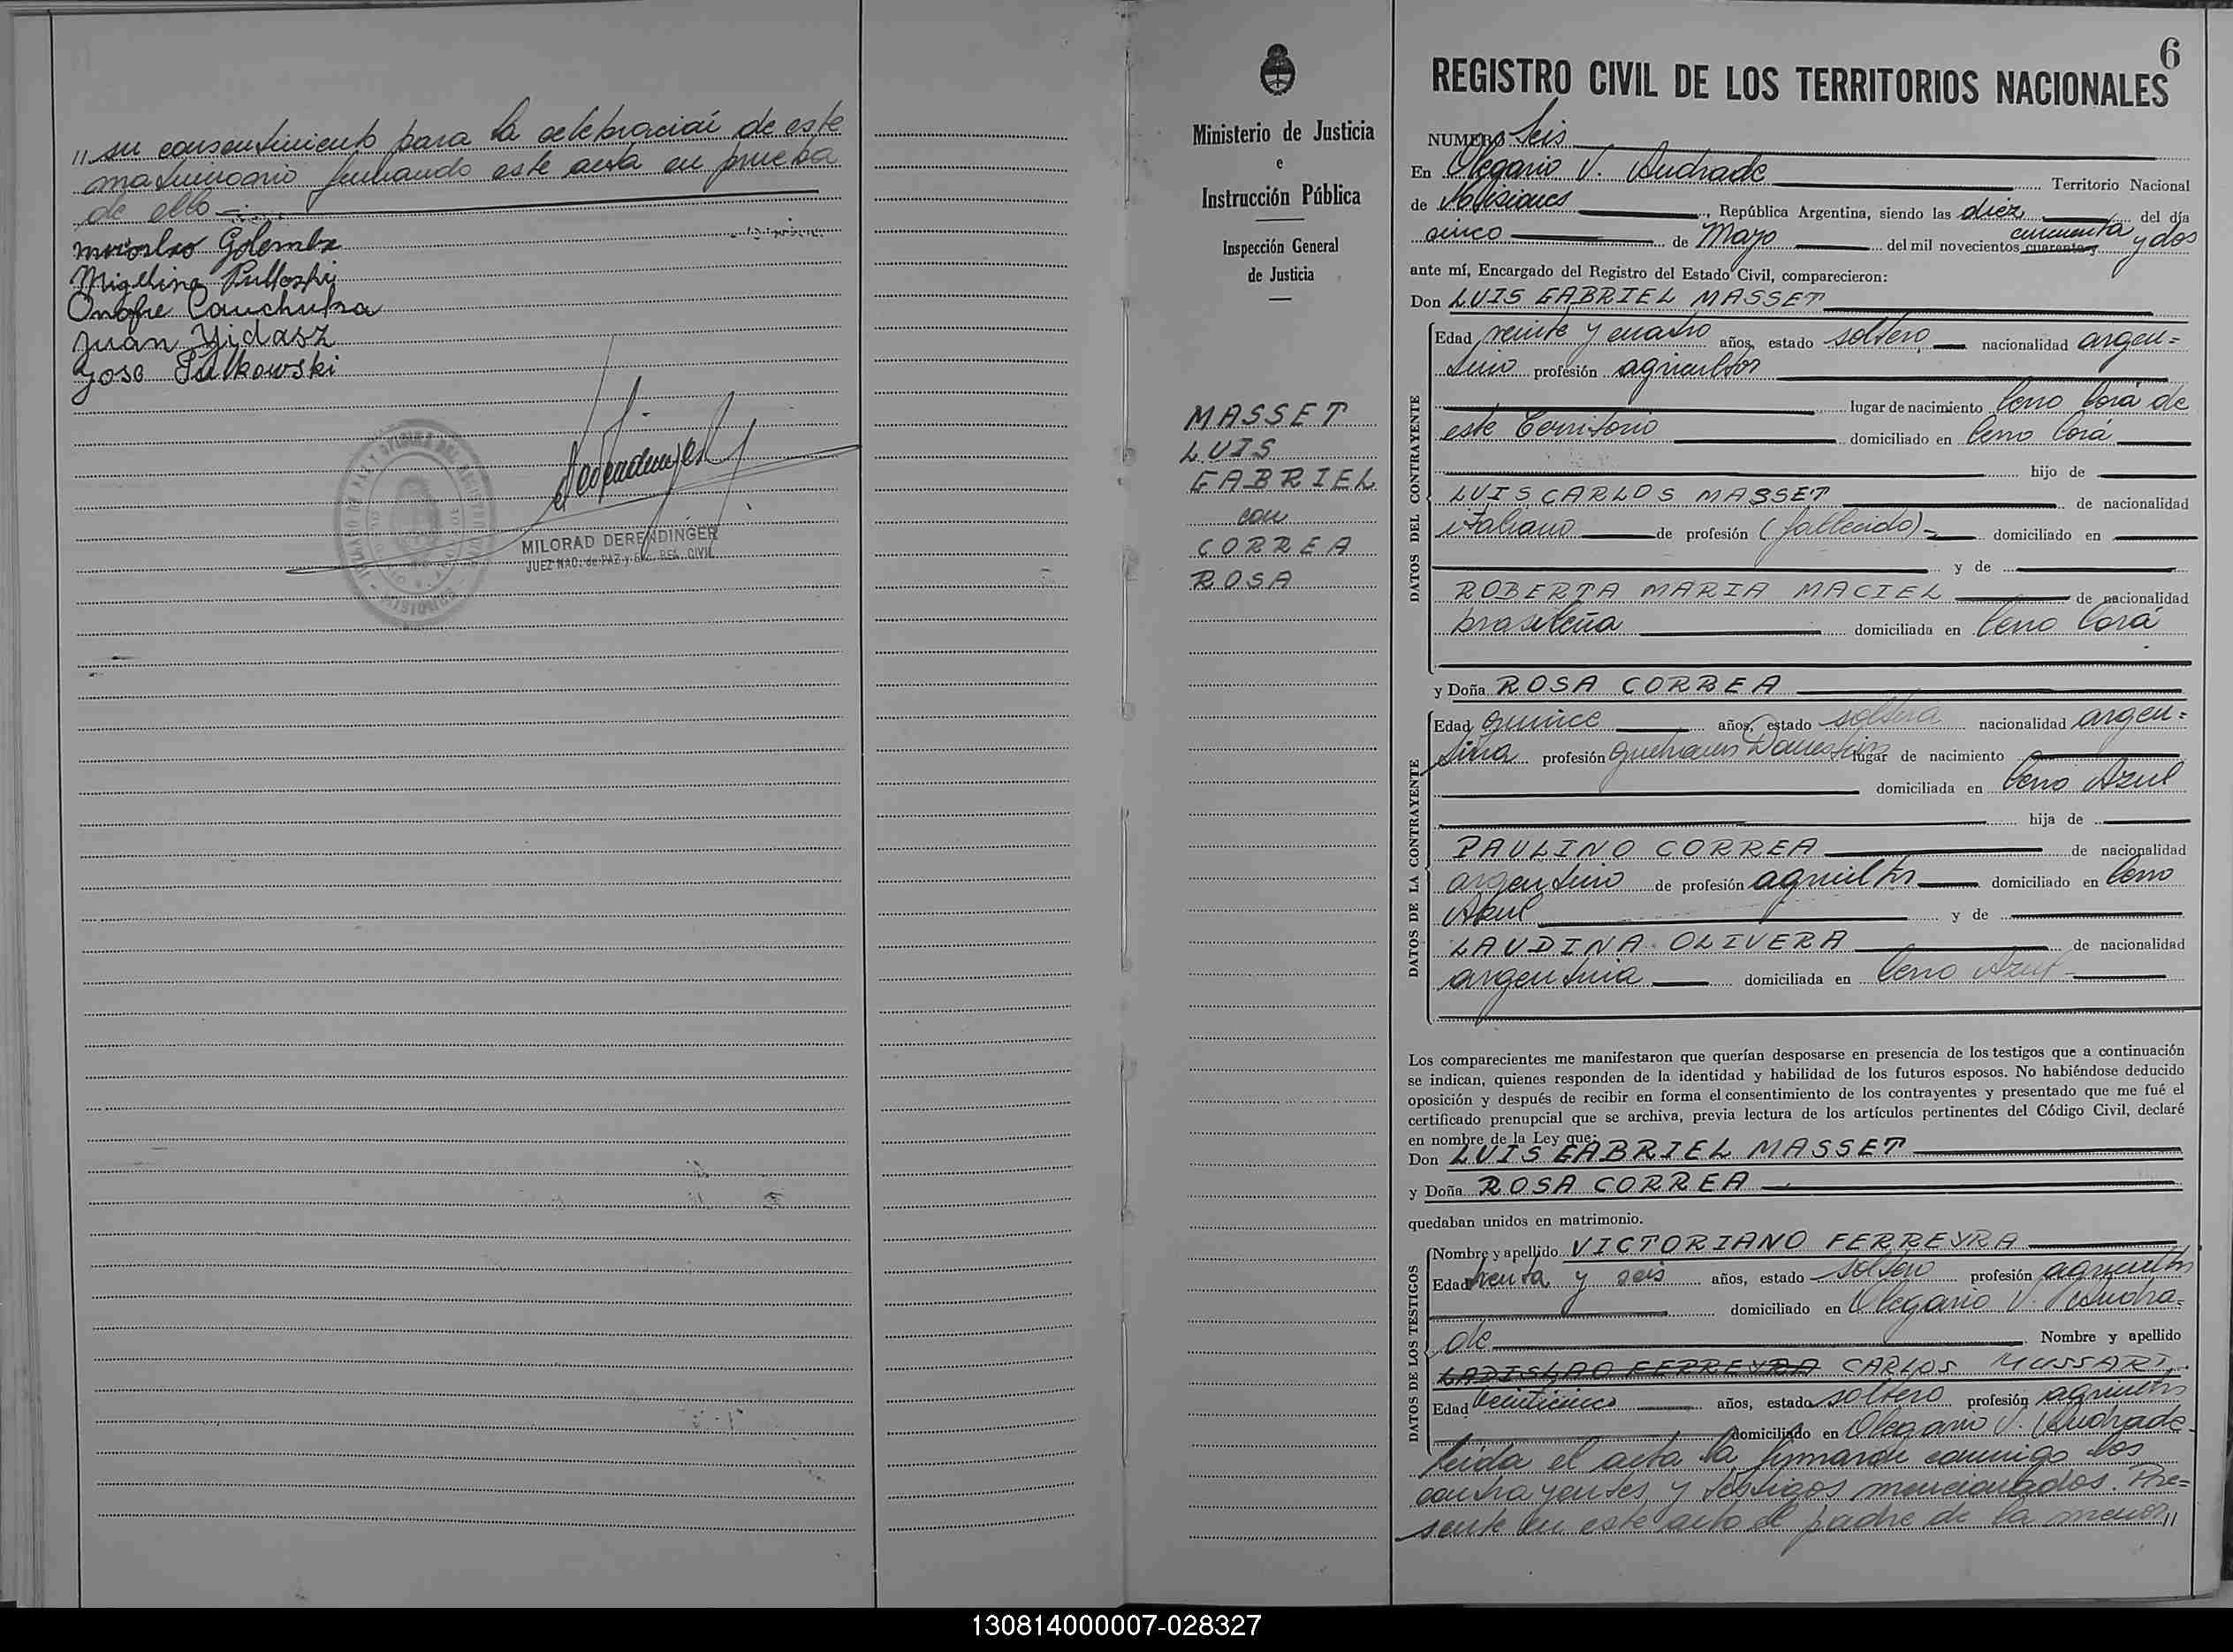 " su consentimiento para la celebración de este
matrimonio firmando este acta en prueba
de ello
Miroslao Golemba
Onofre Cauchuka
Juan Yidasz
Jose Sulkowski
MILORAD DERENDINGER
JUEZ NAC. de PAZ y ENC. REG. CIVIL
Ministerio de Justicia
e
Instrucción Pública
Inspección General
de Justicia
MASSET
LUIS
GABRIEL
con
CORREA
ROSA
6
REGISTRO CIVIL DE LOS TERRITORIOS NACIONALES
NUMERO Seis
En Olegario V. Andrade Territorio Nacional
de Misiones, República Argentina, siendo las diez del día
cinco de Mayo del mil novecientos cuarenta y cincuenta y dos
ante mí, Encargado del Registro del Estado Civil, comparecieron:
Don LUIS GABRIEL MASSET
DATOS DEL CONTRAYENTE
Edad veinte y cuatro años, estado soltero nacionalidad argen=
tino profesión agricultor
lugar de nacimiento Cerro Corá de
este Territorio domiciliado en Cerro Corá
hijo de
LUIS CARLOS MASSET de nacionalidad
italiano de profesión (fallecido) domiciliado en
y de
ROBERTA MARIA MACIEL de nacionalidad
brasileña domiciliada en Cerro Corá
y Doña ROSA CORREA
DATOS DE LA CONTRAYENTE
Edad quince años, estado soltera nacionalidad argen=
tina profesión quehaceres Domesticos lugar de nacimiento
domiciliada en Cerro Azul
hija de
PAULINO CORREA de nacionalidad
argentino de profesión agricultor domiciliado en Cerro
Azul y de
LAUDINA OLIVERA de nacionalidad
argentina domiciliada en Cerro Azul
Los comparecientes me manifestaron que querían desposarse en presencia de los testigos que a continuación
se indican, quienes responden de la identidad y habilidad de los futuros esposos. No habiéndose deducido
oposición y después de recibir en forma el consentimiento de los contrayentes y presentado que me fué el
certificado prenupcial que se archiva, previa lectura de los artículos pertinentes del Código Civil, declaré
en nombre de la Ley que:
Don LUIS GABRIEL MASSET
y Doña ROSA CORREA
quedaban unidos en matrimonio.
DATOS DE LOS TESTIGOS
Nombre y apellido VICTORIANO FERREYRA
Edad treinta y seis años, estado soltero profesión agricultor
domiciliado en Olegario V. Andra=
de Nombre y apellido
LADISLAO FERREYRA CARLOS MUSSART
Edad veinticinco años, estado soltero profesión agricultor
domiciliado en Olegario V. Andrade
leída el acta la firmaron conmigo los
contrayentes y testigos mencionados. Pre=
sente en este acto el padre de la menor "
130814000007-028327